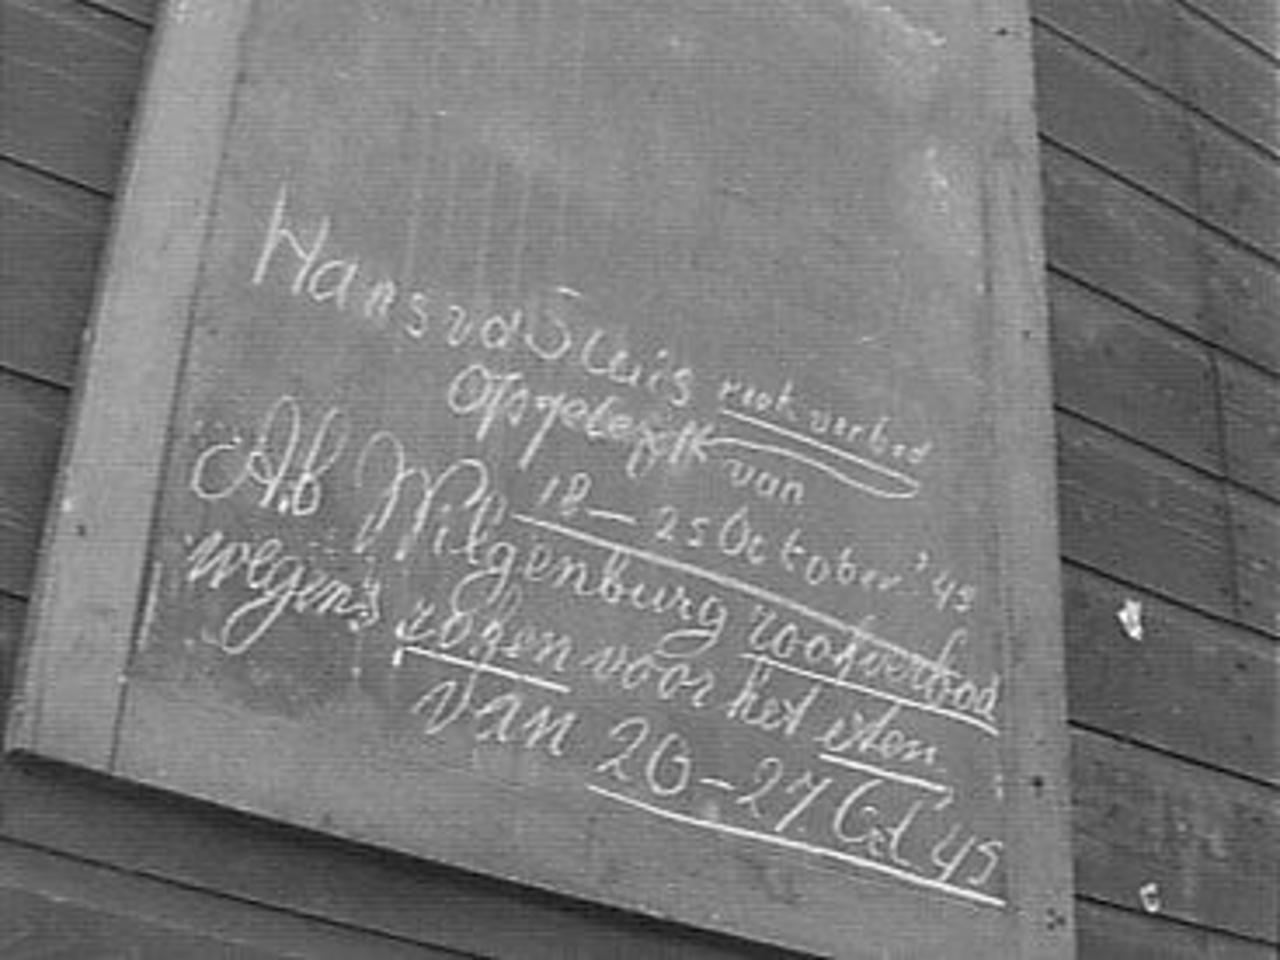 Hans vd Sluis rook verbod
Opgelegdt van
18 – 25 October '45
Ab Wilgenburg rookverbod
wegens roken voor het eten
van 20 – 27 Oct 45